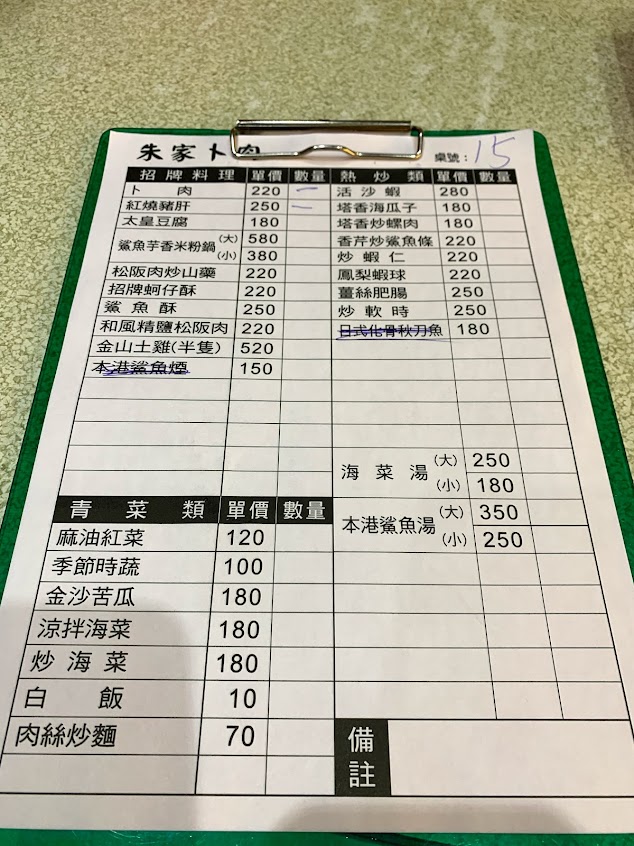 朱家卜肉 桌號：15
招牌料理 單價 數量
卜肉 220 一
紅燒豬肝 250 一
太皇豆腐 180
鯊魚芋香米粉鍋 (大) 580
(小) 380
松阪肉炒山藥 220
招牌蚵仔酥 220
鯊魚酥 250
和風精鹽松阪肉 220
金山土雞(半隻) 520
本港鯊魚煙 150
青菜類 單價 數量
麻油紅菜 120
季節時蔬 100
金沙苦瓜 180
涼拌海菜 180
炒海菜 180
白飯 10
肉絲炒麵 70
熱炒類 單價 數量
活沙蝦 280
塔香海瓜子 180
塔香炒螺肉 180
香芹炒鯊魚條 220
炒蝦仁 220
鳳梨蝦球 220
薑絲肥腸 250
炒軟時 250
日式化骨秋刀魚 180
海菜湯 (大) 250
(小) 180
本港鯊魚湯 (大) 350
(小) 250
備註